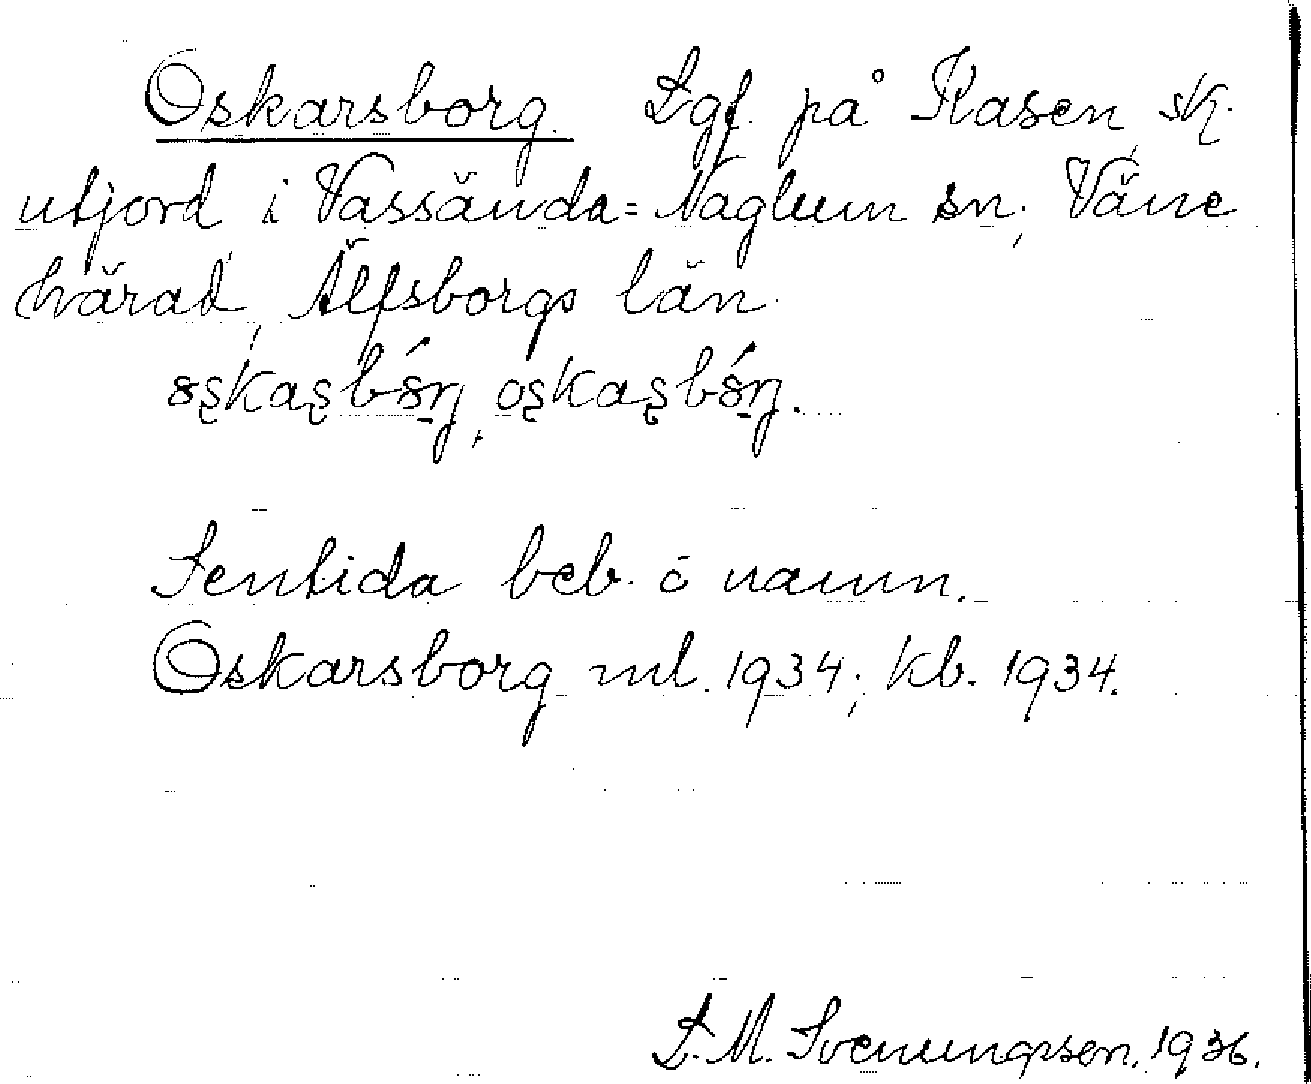 Oskarsborg. Lgf. på Kasen, sk.
utjord i Vassända=Naglum sn; Väne
härad, Älfsborgs län.
Sentida beb. o namn.
Oskarsborg ml. 1934; kb. 1934.
L. M. Svenungsson. 1936.